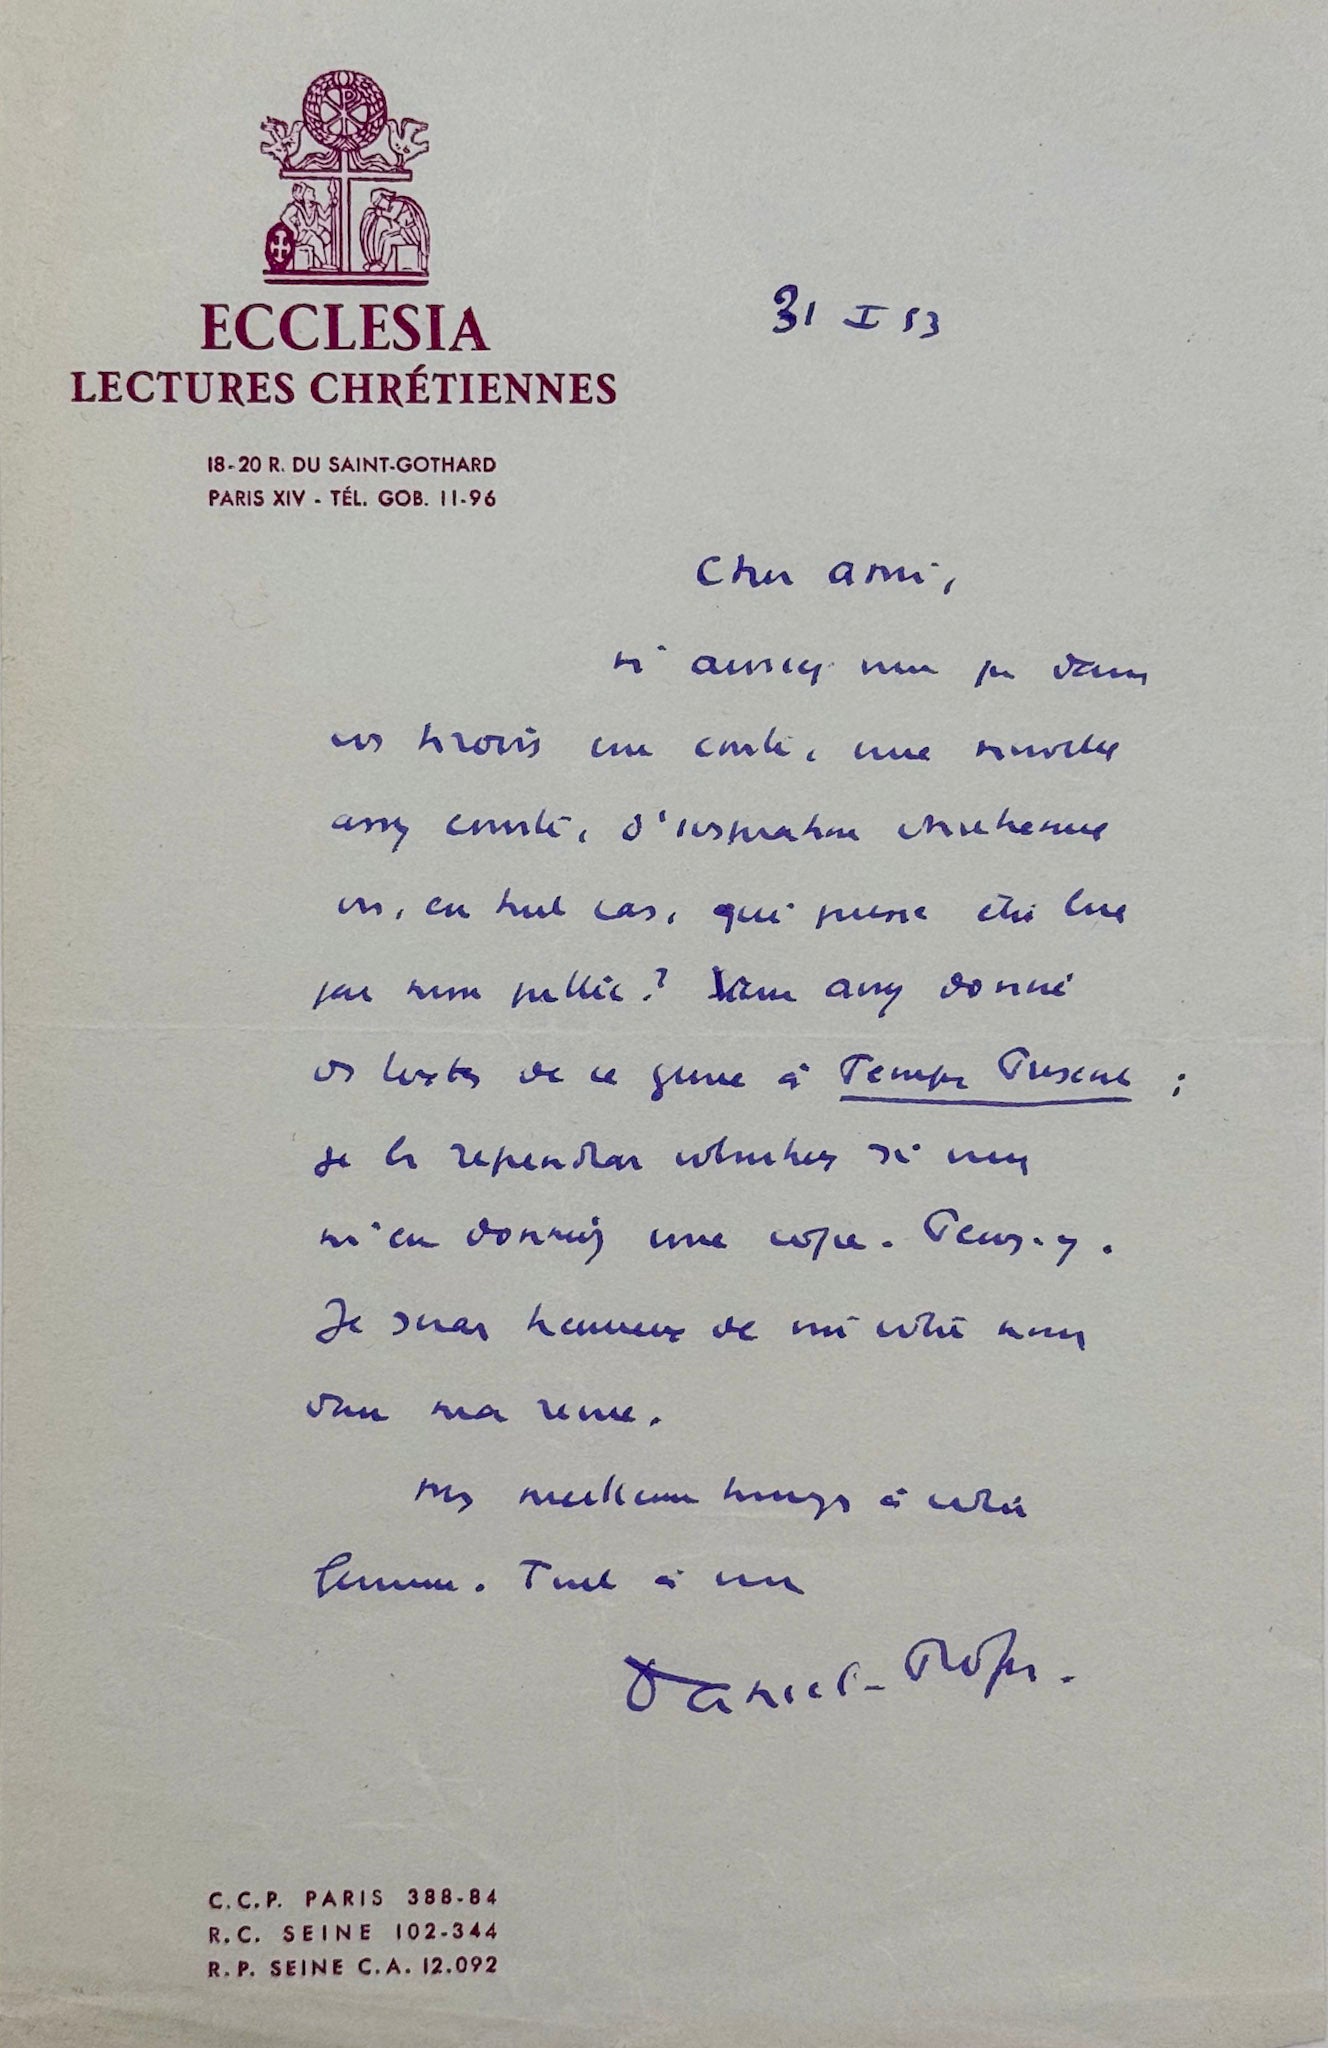 ECCLESIA
LECTURES CHRÉTIENNES
18-20 R. DU SAINT-GOTHARD
PARIS XIV - TÉL. GOB. 11-96
31 I 53
Cher ami,
n'auriez-vous pas dans
vos tiroirs un conte, une nouvelle
assez courte, d'inspiration chrétienne
ou, en tout cas, qui puisse être lue
par mon public ? Vous avez donné
des textes de ce genre à Temps Présent ;
je les reprendrai volontiers si vous
m'en donniez une copie. Pensez-y.
Je serai heureux de voir votre nom
dans ma revue.
Mes meilleurs hommages à votre
femme. Tout à vous
Daniel-Rops.
C.C.P. PARIS 388-84
R.C. SEINE 102-344
R.P. SEINE C.A. 12.092